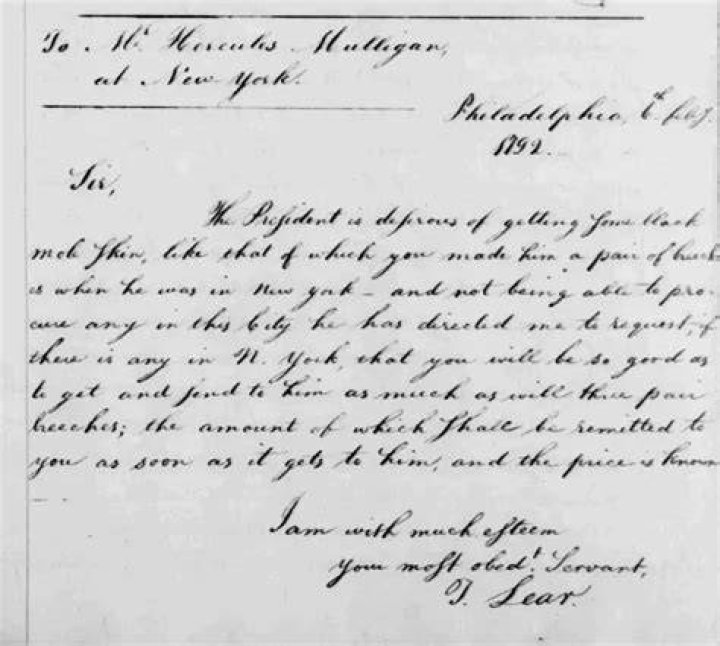 To Mr. Hercules Mulligan,
at New York.
Philadelphia, 6th feby.
1792.
Sir,
The President is desirous of getting some black
mole skin, like that of which you made him a pair of breech-
es when he was in New york - and not being able to pro-
cure any in this City he has directed me to request, if
there is any in N. York, that you will be so good as
to get and send to him as much as will three pair
breeches; the amount of which shall be remitted to
you as soon as it gets to him, and the price is known
I am with much esteem
your most obedt. Servant,
T. Lear.